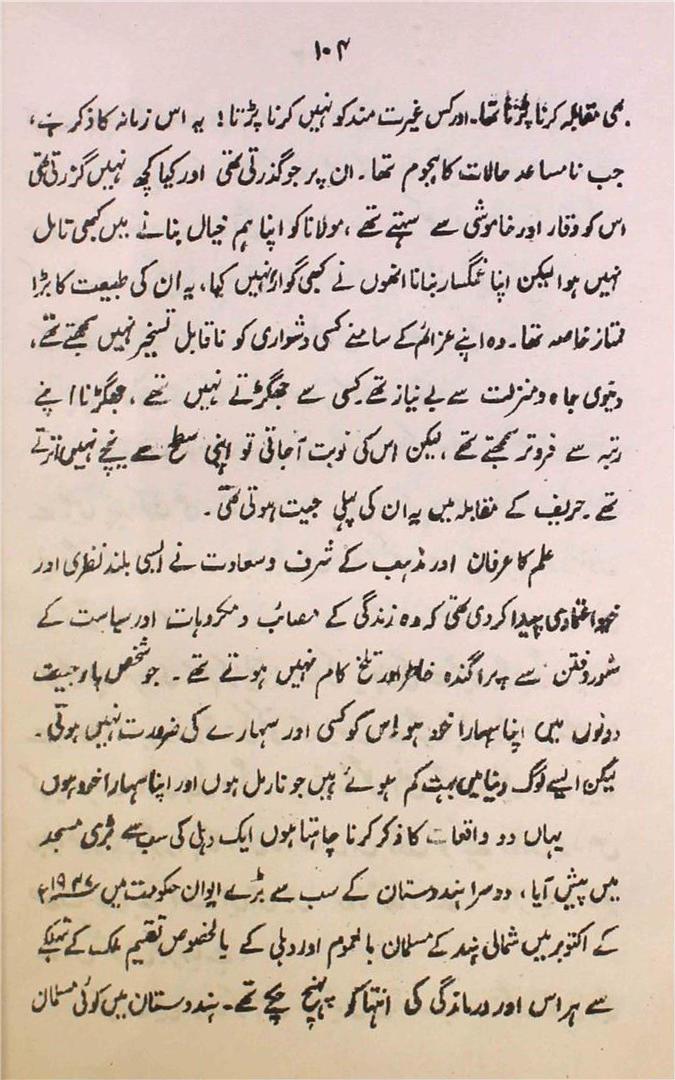 ۱۰۴
بھی مقابلہ کرنا پڑتا تھا۔ اور کس غیرت مند کو نہیں کرنا پڑتا! یہ اس زمانہ کا ذکر ہے،
جب نامساعد حالات کا ہجوم تھا۔ ان پر جو گذرتی تھی اور کیا کچھ نہیں گزرتی تھی
اس کو وقار اور خاموشی سے سہتے تھے، مولانا کو اپنا ہم خیال بنانے میں کبھی تامل
نہیں ہوا لیکن اپنا غمگسار بنانا انھوں نے کبھی گوارا نہیں کیا، یہ ان کی طبیعت کا بڑا
ممتاز خاصہ تھا۔ وہ اپنے عزائم کے سامنے کسی دشواری کو ناقابل تسخیر نہیں سمجھتے تھے،
دنیوی جاہ و منزلت سے بے نیاز تھے کسی سے جھگڑتے نہیں تھے، جھگڑنا اپنے
رتبہ سے فروتر سمجھتے تھے، لیکن اس کی نوبت آجاتی تو اپنی سطح سے نیچے نہیں اترتے
تھے۔ حریف کے مقابلہ میں یہ ان کی پہلی جیت ہوتی تھی۔
علم کا عرفان اور مذہب کے شرف و سعادت نے ایسی بلند نظری اور
خود اعتمادی پیدا کر دی تھی کہ وہ زندگی کے مصائب و مکروہات اور سیاست کے
شور و فتن سے پراگندہ خاطر اور تلخ کام نہیں ہوتے تھے۔ جو شخص ہار جیت
دونوں میں اپنا سہارا خود ہو اس کو کسی اور سہارے کی ضرورت نہیں ہوتی۔
لیکن ایسے لوگ دنیا میں بہت کم ہوئے ہیں جو نارمل ہوں اور اپنا سہارا خود ہوں
یہاں دو واقعات کا ذکر کرنا چاہتا ہوں ایک دہلی کی سب سے بڑی مسجد
میں پیش آیا، دوسرا ہندوستان کے سب سے بڑے ایوان حکومت میں ۱۹۴۷ء
کے اکتوبر میں شمالی ہند کے مسلمان بالعموم اور دہلی کے بالخصوص تقسیم ملک کے تہلکے
سے ہراس اور درماندگی کی انتہا کو پہنچ چکے تھے۔ ہندوستان میں کوئی مسلمان